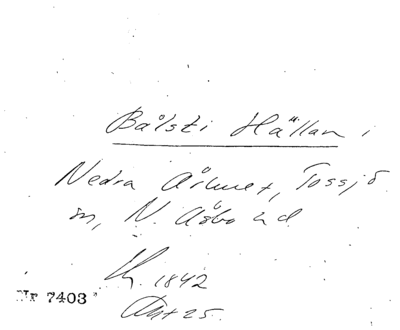 Bålsti Hällan i
Nedra Århult, Tossjö
sn, N. Åsbo hd
1842
Akt 25.
Nr 7403